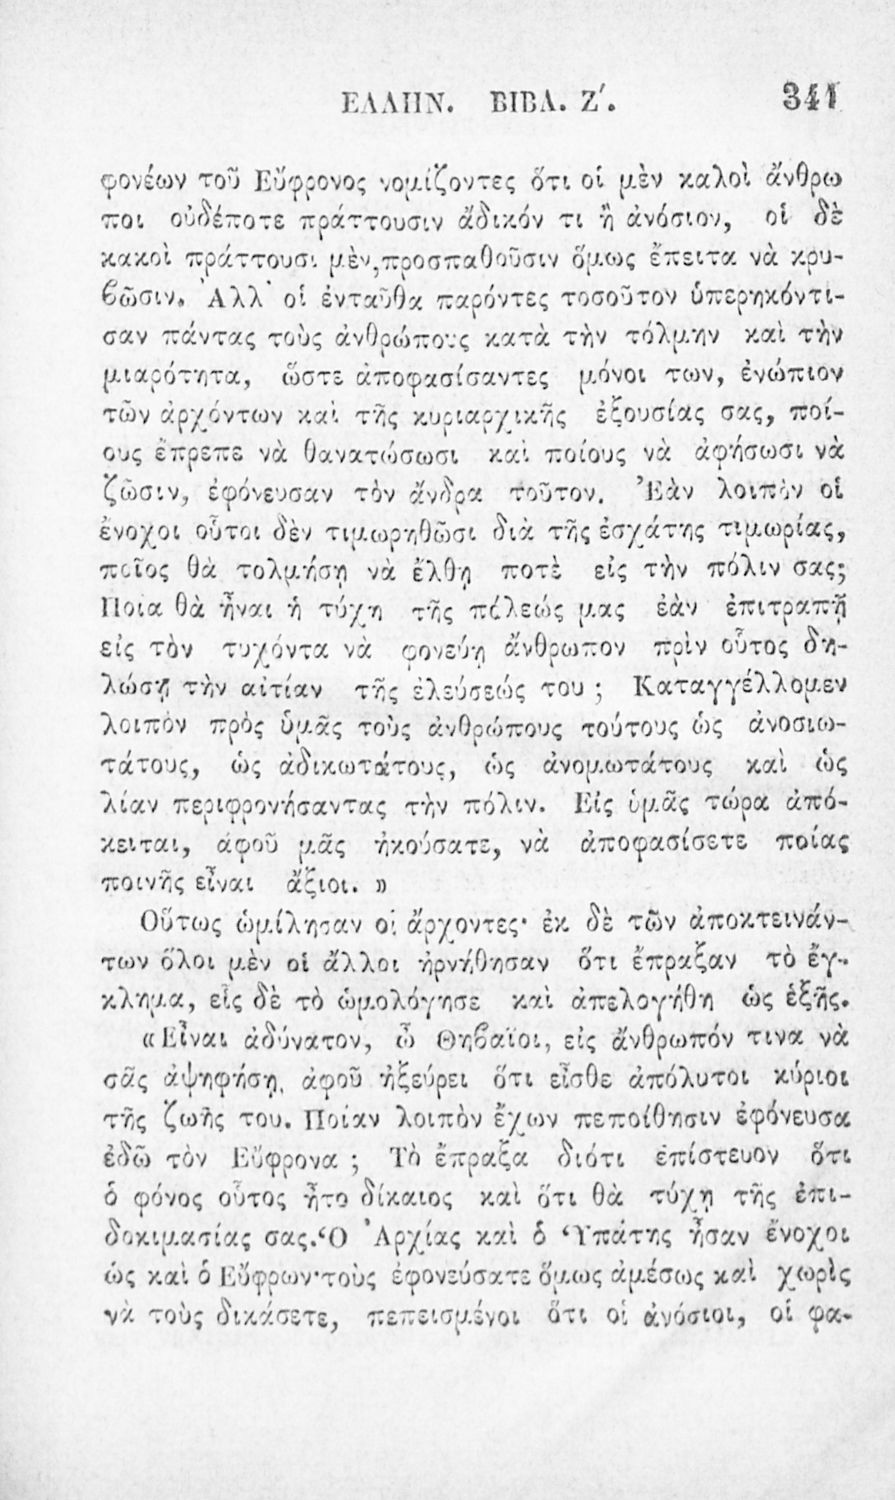 ΕΛΛΗΝ. ΒΙΒΛ. Ζ′. 341
φονέων τοῦ Εὔφρονος νομίζοντες ὅτι οἱ μὲν καλοὶ ἄνθρω
ποι οὐδέποτε πράττουσιν ἄδικόν τι ἢ ἀνόσιον, οἱ δὲ
κακοὶ πράττουσι μὲν,προσπαθοῦσιν ὅμως ἔπειτα νὰ κρυ-
ϐῶσιν. Ἀλλ᾽ οἱ ἐνταῦθα παρόντες τοσοῦτον ὑπερηκόντι-
σαν πάντας τοὺς ἀνθρώπους κατὰ τὴν τόλμην καὶ τὴν
μιαρότητα, ὥστε ἀποφασίσαντες μόνοι των, ἐνώπιον
τῶν ἀρχόντων καὶ τῆς κυριαρχικῆς ἐξουσίας σας, ποί-
ους ἔπρεπε νὰ θανατώσωσι καὶ ποίους νὰ ἀφήσωσι νὰ
ζῶσιν, ἐφόνευσαν τὸν ἄνδρα τοῦτον. Ἐὰν λοιπὸν οἱ
ἔνοχοι οὗτοι δὲν τιμωρηθῶσι διὰ τῆς ἐσχάτης τιμωρίας,
ποῖος θὰ τολμήσῃ νὰ ἔλθῃ ποτὲ εἰς τὴν πόλιν σας;
Ποια θὰ ἦναι ἡ τύχη τῆς πόλεώς μας ἐὰν ἐπιτραπῇ
εἰς τὸν τυχόντα νὰ φονεύῃ ἄνθρωπον πρὶν οὗτος δη-
λώσῃ τὴν αἰτίαν τῆς ἐλεύσεώς του ; Καταγγέλλομεν
λοιπὸν πρὸς ὑμᾶς τοὺς ἀνθρώπους τούτους ὡς ἀνοσιω-
τάτους, ὡς ἀδικωτάτους, ὡς ἀνομωτάτους καὶ ὡς
λίαν περιφρονήσαντας τὴν πόλιν. Εἰς ὑμᾶς τώρα ἀπό-
κειται, ἀφοῦ μᾶς ἠκούσατε, νὰ ἀποφασίσετε ποίας
ποινῆς εἶναι ἄξιοι. »
Οὕτως ὡμίλησαν οἱ ἄρχοντες· ἐκ δὲ τῶν ἀποκτεινάν-
των ὅλοι μὲν οἱ ἄλλοι ἠρνήθησαν ὅτι ἔπραξαν τὸ ἔγ-
κλημα, εἷς δὲ τὸ ὡμολόγησε καὶ ἀπελογήθη ὡς ἑξῆς.
«Εἶναι ἀδύνατον, ὦ Θηϐαῖοι, εἰς ἄνθρωπόν τινα νὰ
σᾶς ἀψηφήσῃ, ἀφοῦ ἠξεύρει ὅτι εἶσθε ἀπόλυτοι κύριοι
τῆς ζωῆς του. Ποίαν λοιπὸν ἔχων πεποίθησιν ἐφόνευσα
ἐδῶ τὸν Εὔφρονα ; Τὸ ἔπραξα διότι ἐπίστευον ὅτι
ὁ φόνος οὗτος ἦτο δίκαιος καὶ ὅτι θὰ τύχῃ τῆς ἐπι-
δοκιμασίας σας.Ὁ Ἀρχίας καὶ ὁ Ὑπάτης ἦσαν ἔνοχοι
ὡς καὶ ὁ Εὔφρων·τοὺς ἐφονεύσατε ὅμως ἀμέσως καὶ χωρὶς
νὰ τοὺς δικάσετε, πεπεισμένοι ὅτι οἱ ἀνόσιοι, οἱ φα-